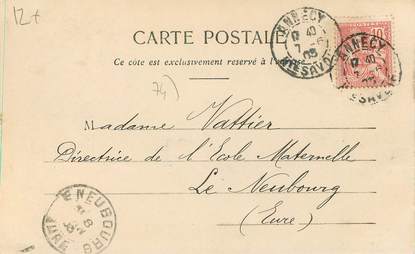 12+
CARTE POSTALE
Ce côté est exclusivement réservé à l'adresse
74)
ANNECY
Hte SAVOIE
ANNECY
Hte SAVOIE
10
Madame Vattier
Directrice de l'Ecole Maternelle
Le Neubourg
(Eure)
LE NEUBOURG
EURE